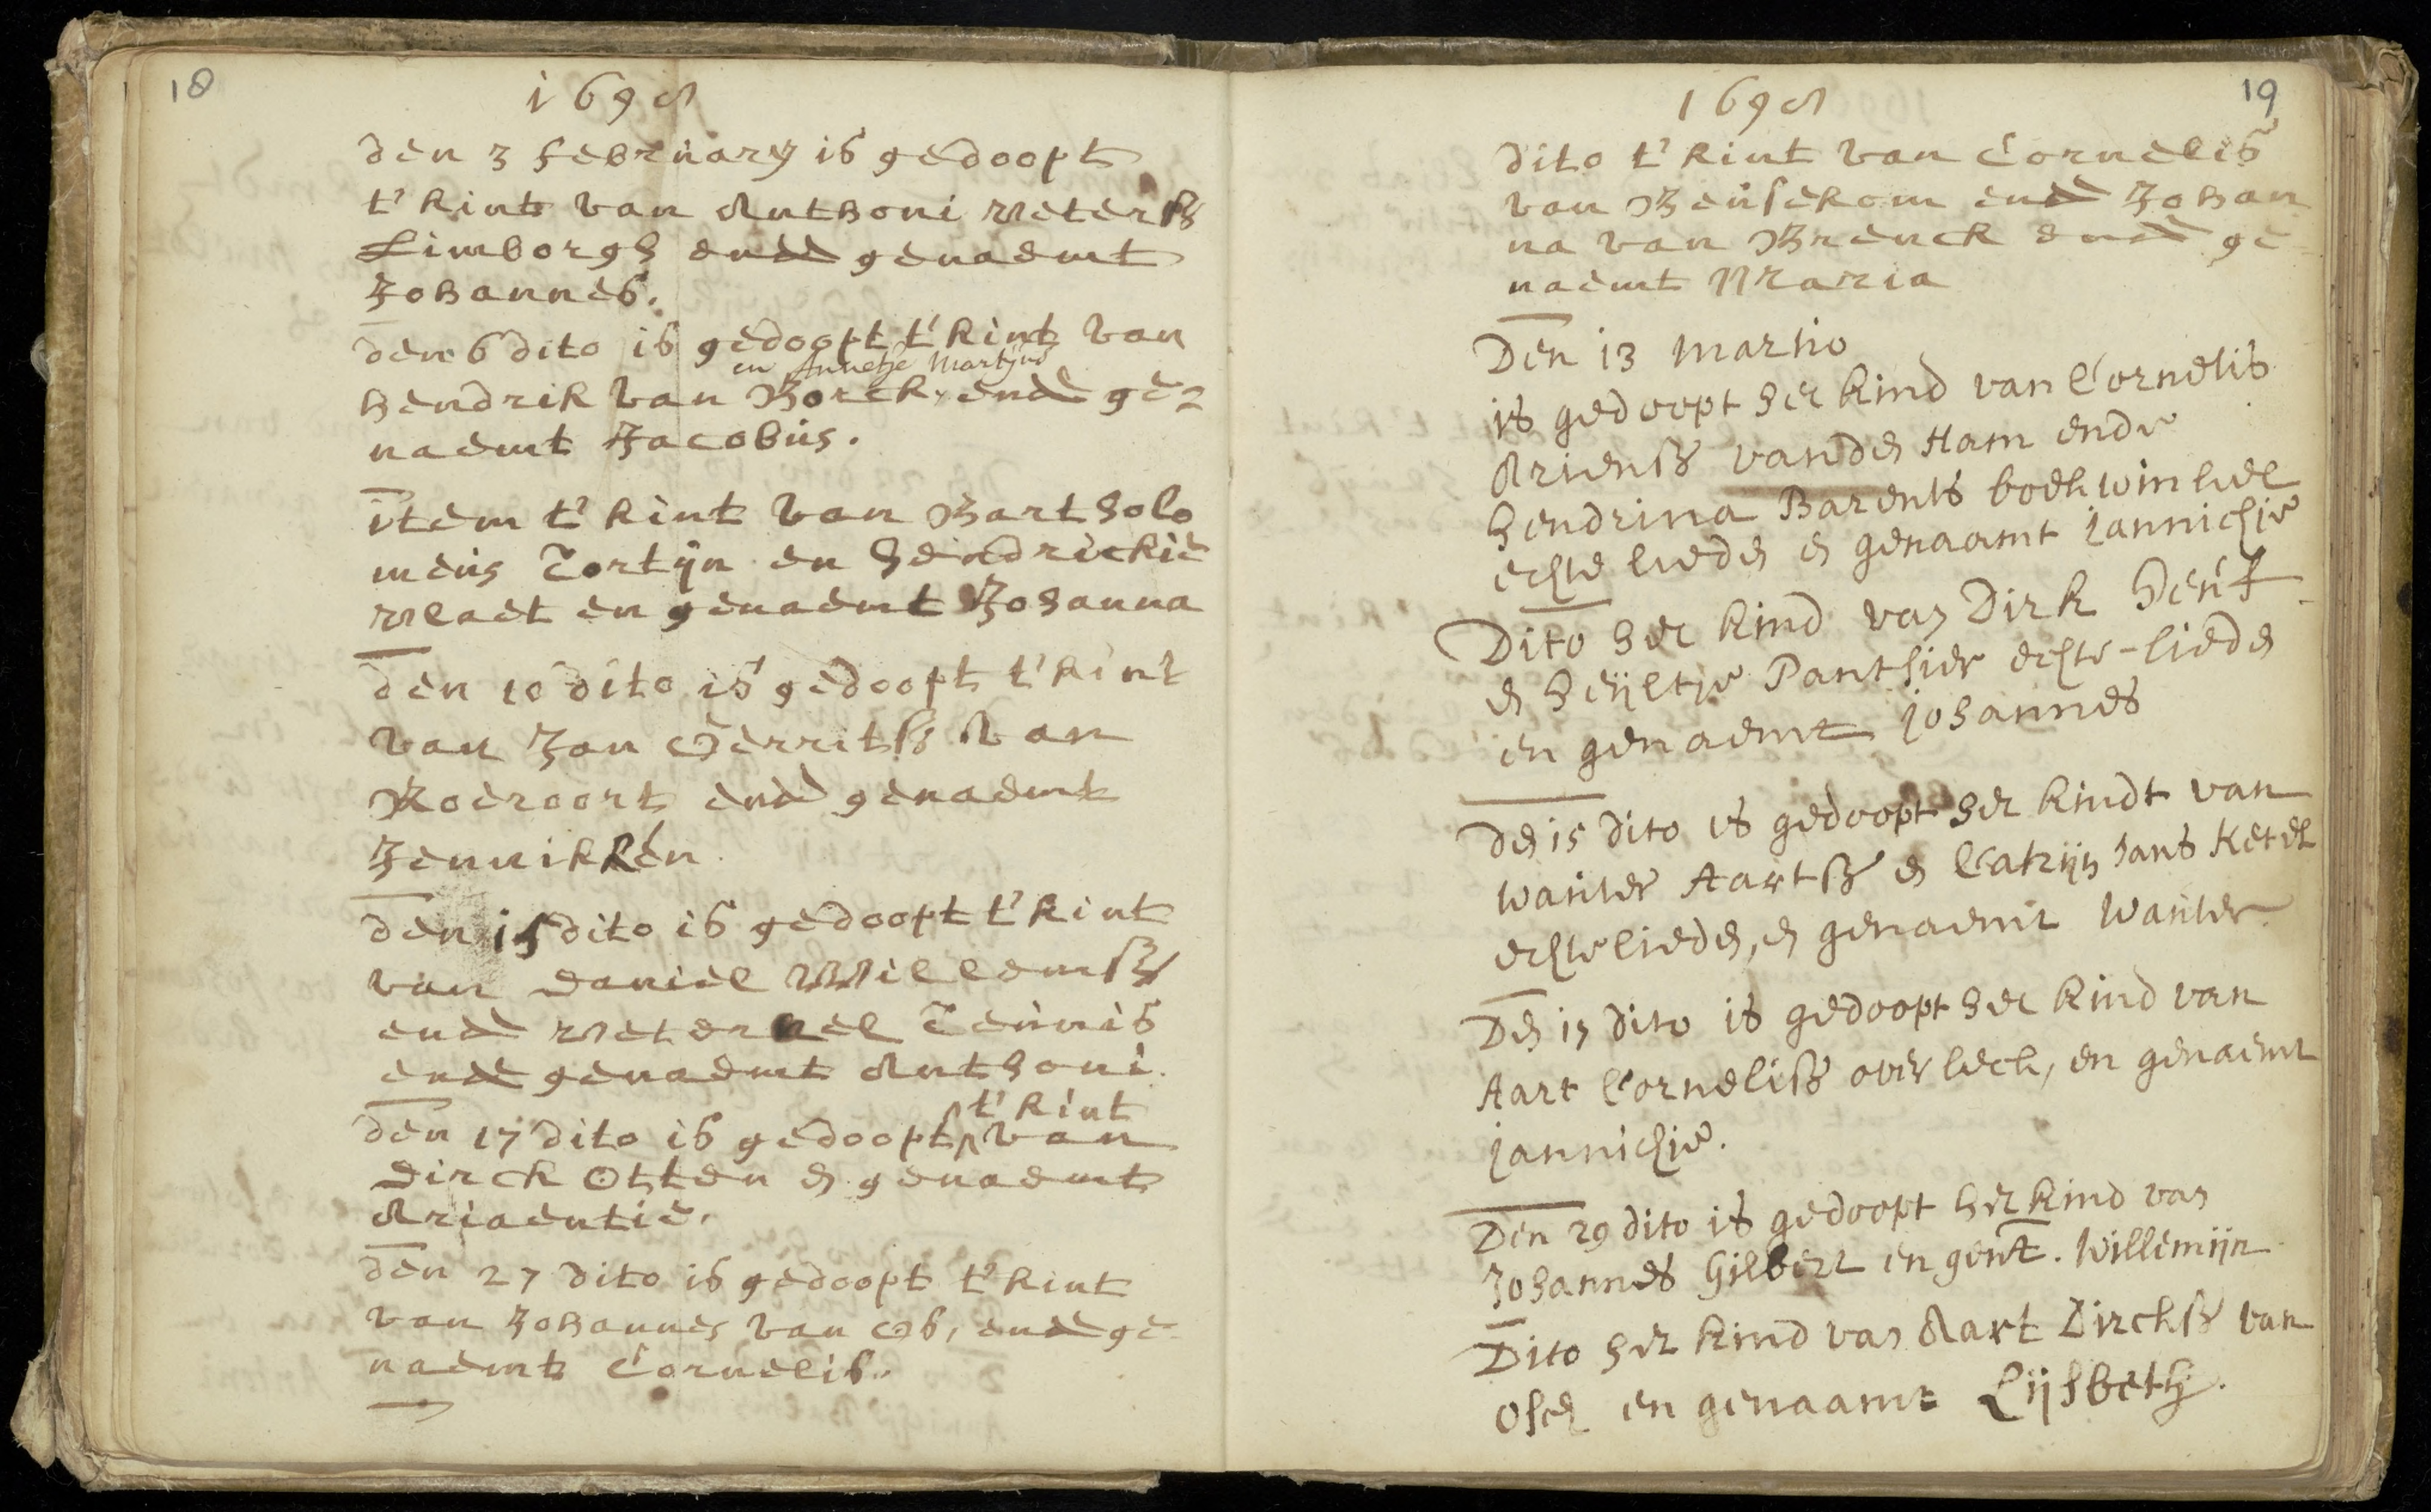 18
1698
den 3 february is gedoopt
t' kint van Anthoni Peterss
Limborgh ende genaemt
Johannes.
den 6 dito is gedoopt t' kint van
en Annetje Martijns
hendrik van Borck, ende ge=
naemt Jacobus.
item t' kint van Bartholo
meus Tortijn en hendrickie
Plaet en genaemt Johanna
den 10 dito is gedoopt t' kint
van Jan Gerritss van
Roeroort ende genaemt
Jennikken
den 15 dito is gedoopt t' kint
van Daniel Willemss
ende Peternel Teunis
ende genaemt Anthoni.
t' kint
den 17 dito is gedoopt van
Dirck Otten en genaemt
Ariaentie.
den 27 dito is gedoopt t' kint
van Johannes van Os, ende ge
naemt Cornelis.
19
1698
dito t' kint van Cornelis
van Beusekom ende Johan
na van Brenck ende ge
naemt Maria
Den 13 Martio
is gedoopt het kind van Cornelis
Arienss vanden Ham ende
hendrina Barents
echte lieden en genaamt Jannichje
Dito het kind van Dirk
en heijltje echte-lieden
en genaemt Johannes
Den 15 dito is gedoopt het kindt van
Wauter Aartss en Catrijn Jans Ketel
echte lieden, en genaemt Wauter
Den 17 dito is gedoopt het kind van
Aart Corneliss overlech, en genaemt
Jannichje.
Den 29 dito is gedoopt het kind van
Johannes Gilbert en gent. Willemijn
Dito het kind van Aart Dirckss van
Osch en genaamt Lijsbeth.